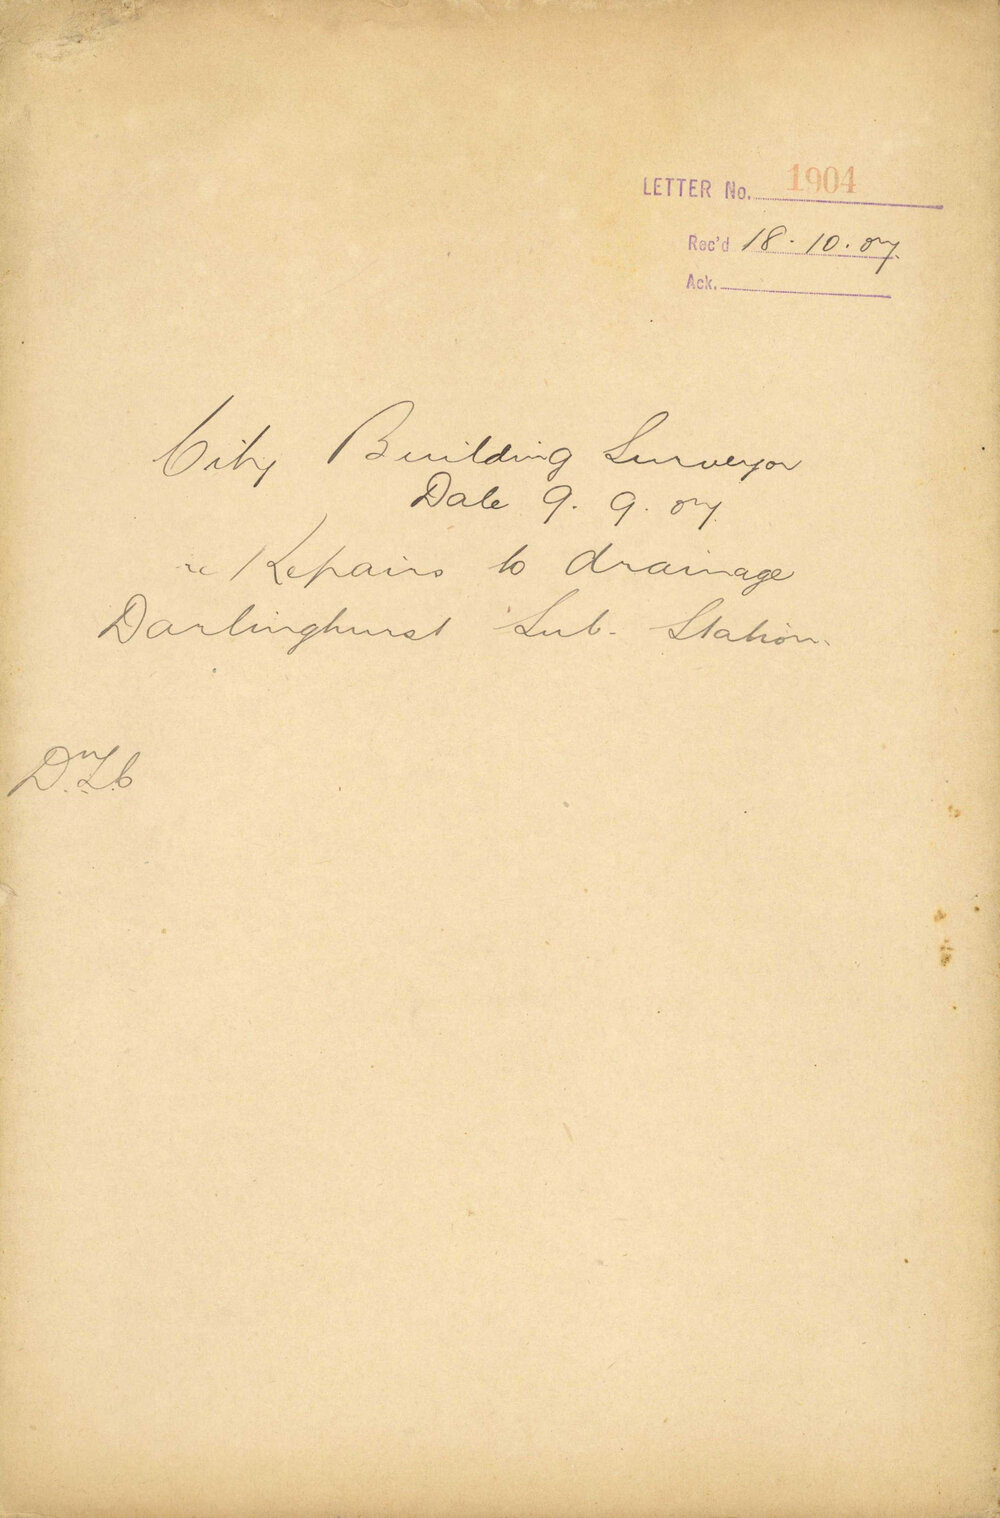 LETTER No. 1904
Rec'd 18.10.07
Ack.
City Building Surveyor
Date 9.9.07
re Repairs to drainage
Darlinghurst Sub. Station.